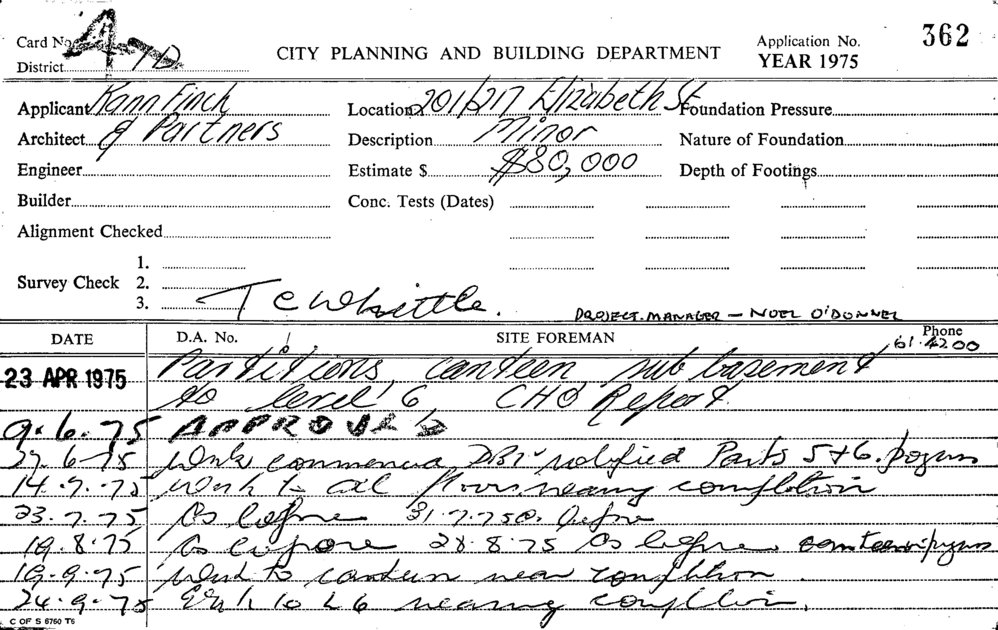 Card No. A 7D
District
CITY PLANNING AND BUILDING DEPARTMENT
Application No. 362
YEAR 1975
Applicant Kann Finch Location 201/217 Elizabeth St Foundation Pressure
Architect & Partners Description Minor Nature of Foundation
Engineer Estimate $ $80,000 Depth of Footings
Builder Conc. Tests (Dates)
Alignment Checked
Survey Check 1.
2.
3.
T C Whittle.
PROJECT MANAGER — NOEL O'DONNEL
DATE D.A. No. SITE FOREMAN Phone 61.4200
23 APR 1975 Partitions, canteen sub basement
to level 6 CHO Report
9.6.75 APPROVED
27.6.75 Work commenced DBI notified Parts 5+6.
14.7.75 Work to all floors nearing completion
23.7.75 As before 31.7.75 As before
19.8.75 As before 28.8.75 As before canteen
19.9.75 Work to canteen near completion
24.9.75 Work to L6 nearing completion.
C OF S 6760 T6